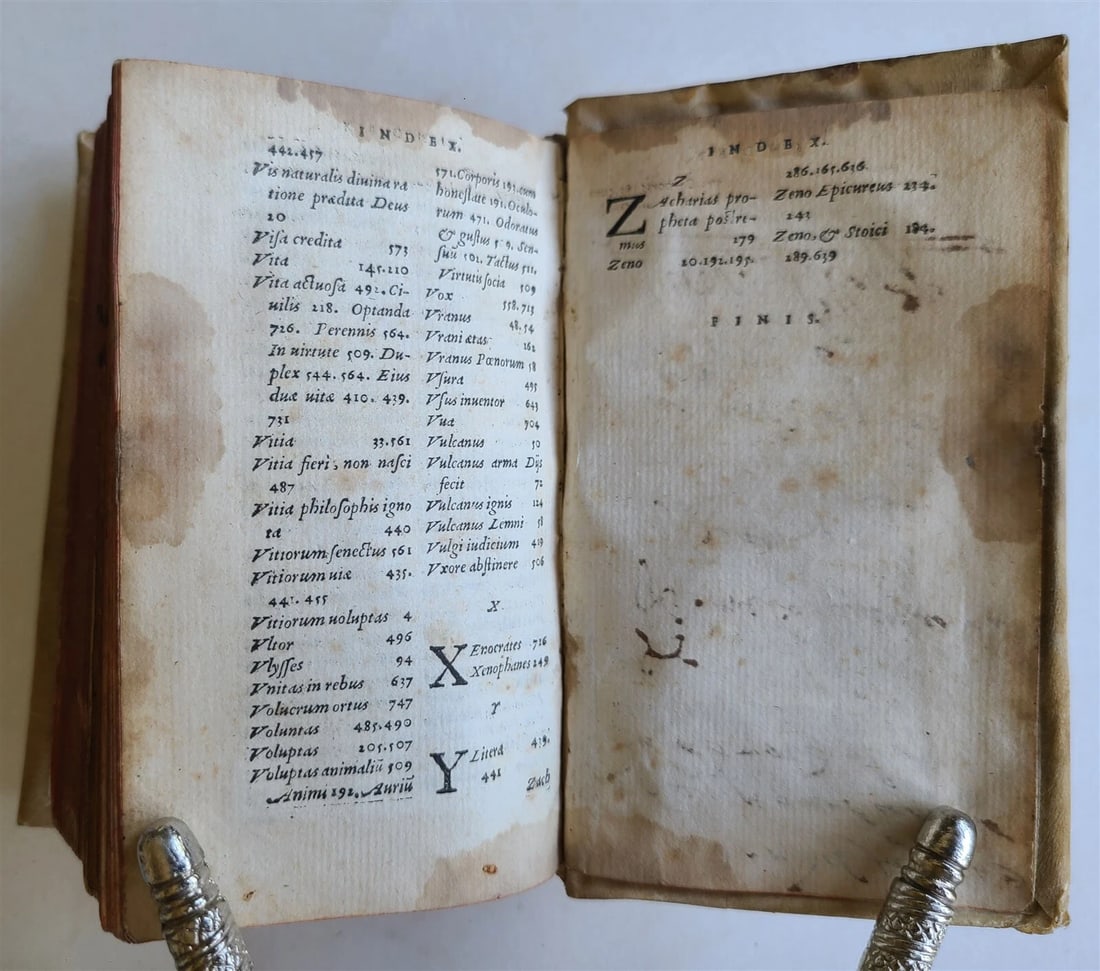 INDEX.
442.457
Vis naturalis diuina ra
tione prædita Deus
20
Visa credita 573
Vita 145.210
Vita actuosa 492. Ci-
uilis 218. Optanda
726. Perennis 564.
In uirtute 509. Du-
plex 544. 564. Eius
duæ uitæ 410. 439.
731
Vitia 33.561
Vitia fieri, non nasci
487
Vitia philosophis igno
ta 440
Vitiorum senectus 561
Vitiorum uiæ 435.
441. 455
Vitiorum uoluptas 4
Vltor 496
Vlysses 94
Vnitas in rebus 637
Volucrum ortus 747
Voluntas 485.490
Voluptas 205.507
Voluptas animaliũ 509
Animi 192. Auriũ
571. Corporis 191. cum
honestate 191. Oculo-
rum 471. Odoratus
& gustus 509. Sen-
suũ 502. Tactus 511.
Virtutis socia 509
Vox 558.715
Vranus 48.54
Vrani ætas 162
Vranus Pœnorum 58
Vsura 495
Vsus inuentor 643
Vua 704
Vulcanus 50
Vulcanus arma Dijs
fecit 72
Vulcanus ignis 124
Vulcanus Lemni 58
Vulgi iudicium 419
Vxore abstinere 506
X
XEnocrates 726
Xenophanes 249
Y
Y Litera 439.
441
Zach
INDEX.
Z
ZAcharias pro-
pheta postre-
mus 179
Zeno 10.192.195.
286.165.636
Zeno Epicureus 234.
243
Zeno, & Stoici 184.
289.639
FINIS.